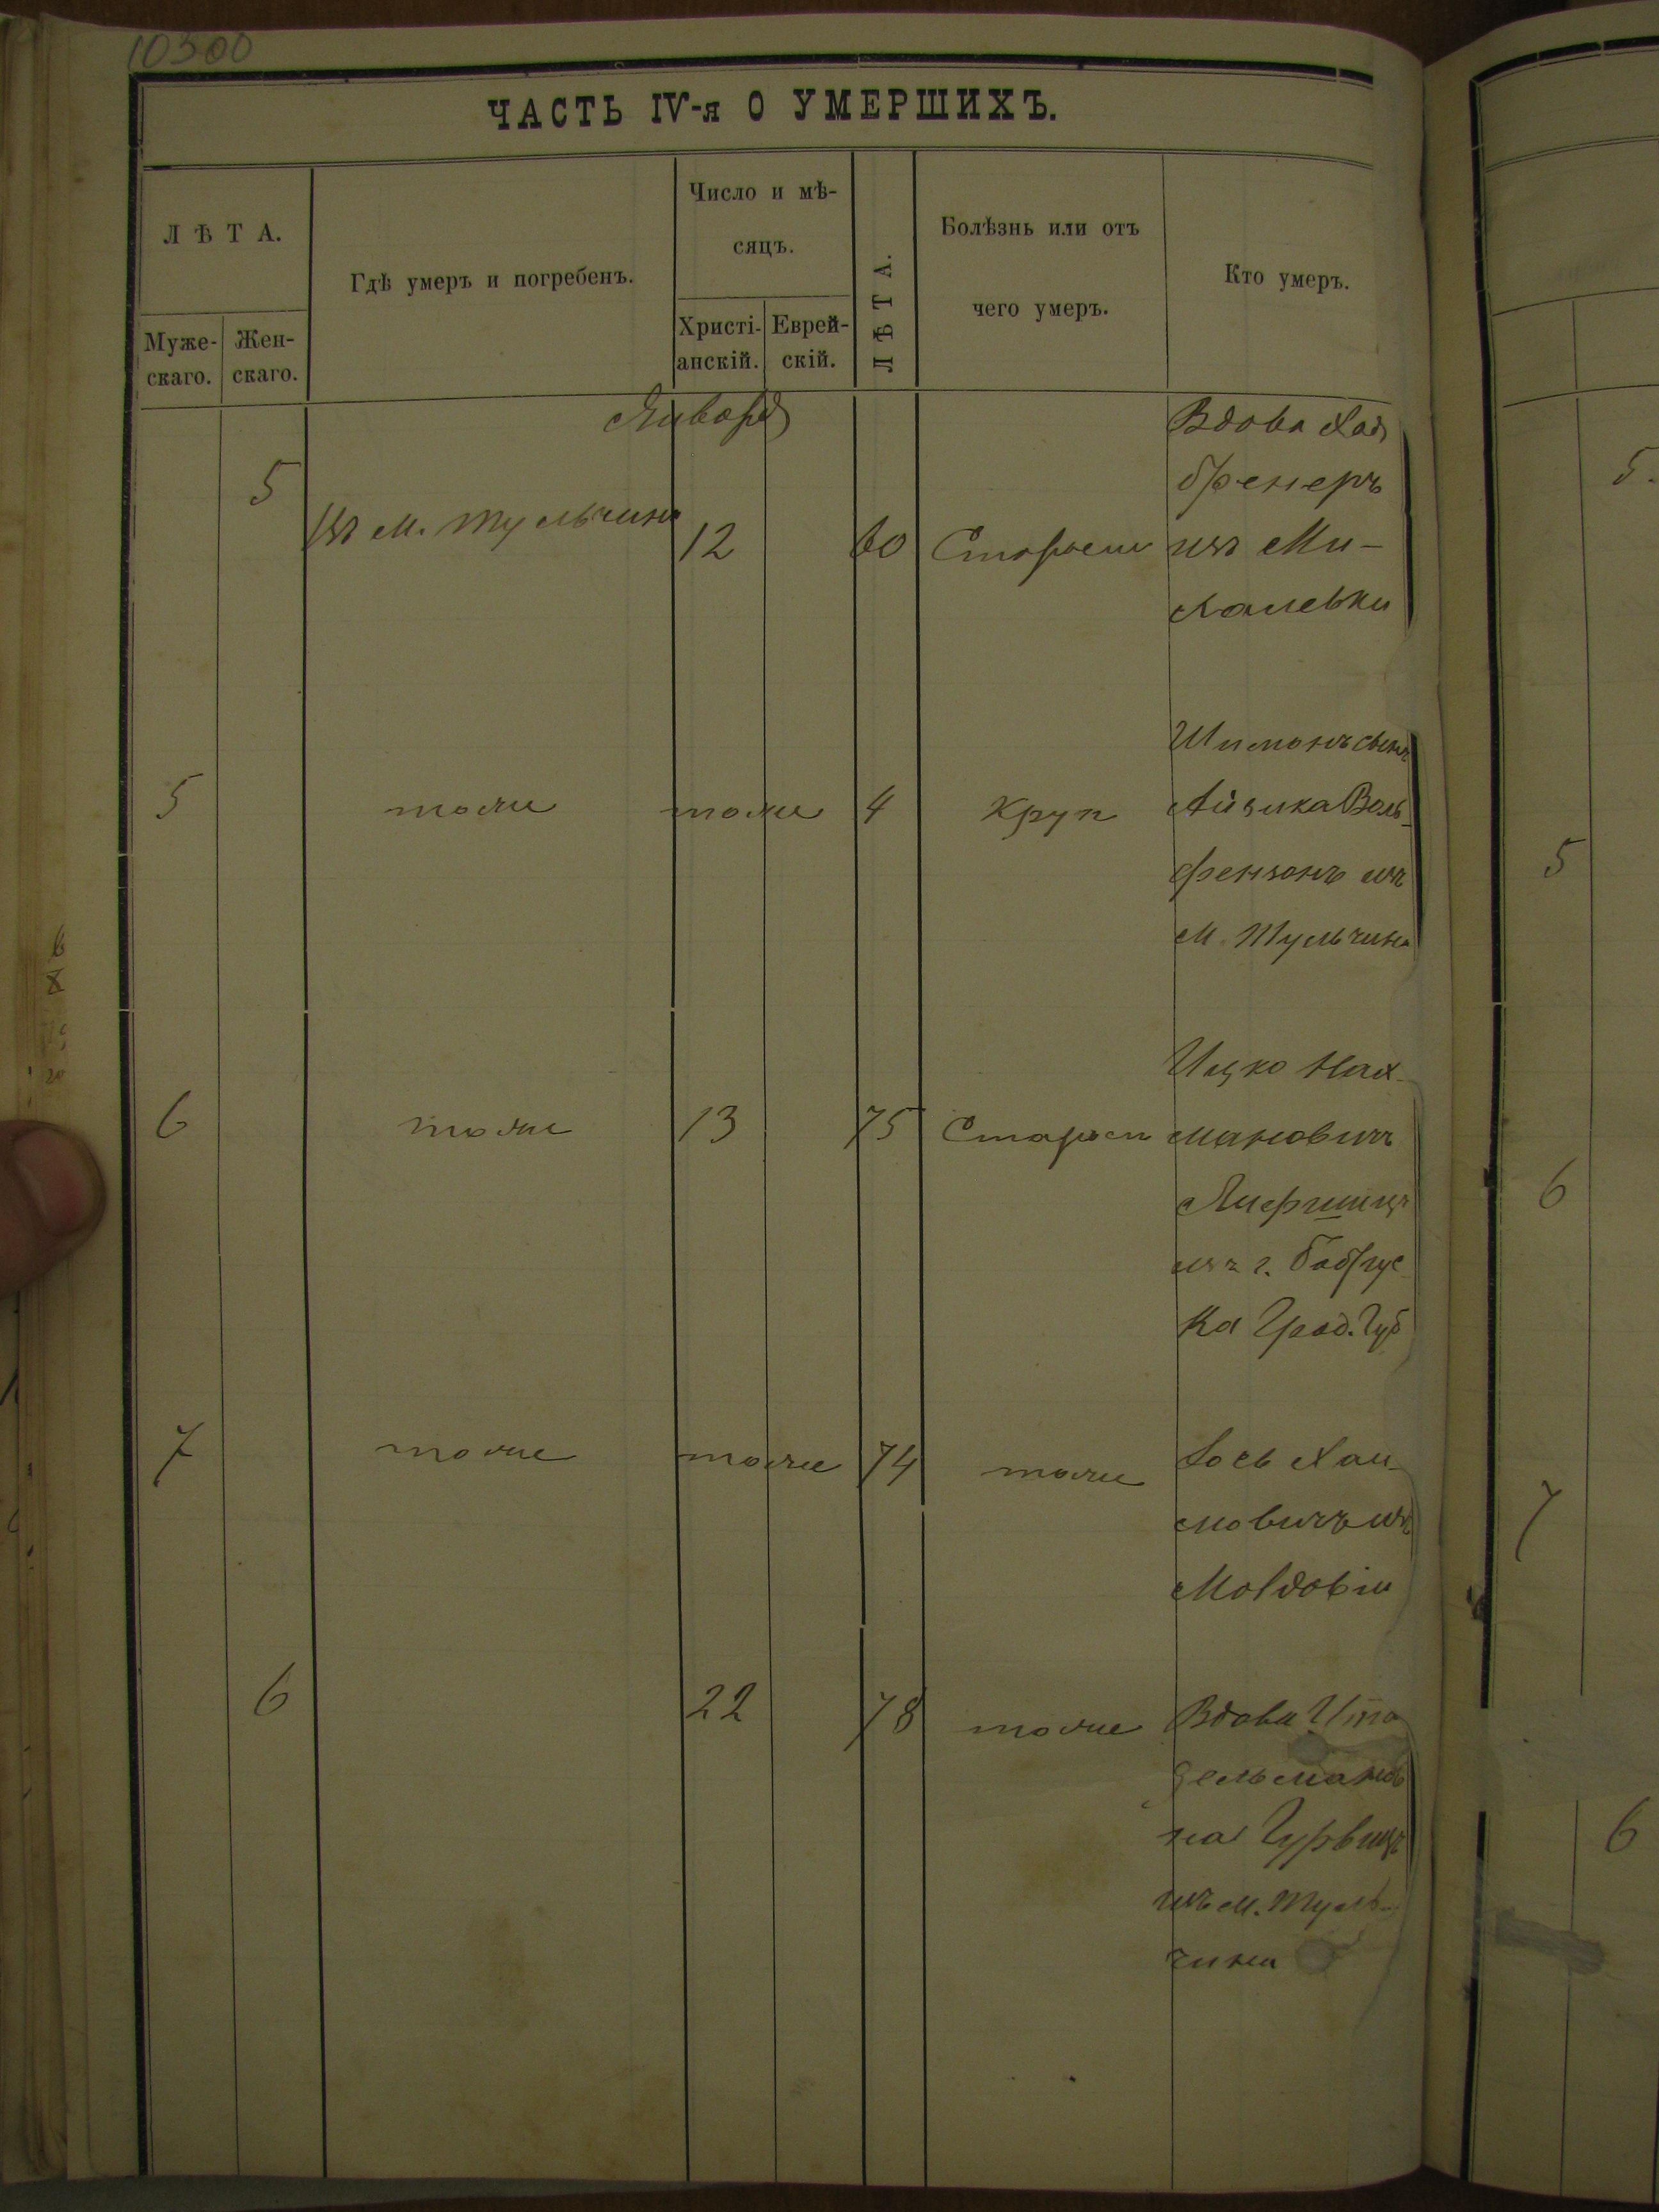 10300
ЧАСТЬ IV-я О УМЕРШИХЪ.
ЛѢТА.
Муже-
скаго.
Жен-
скаго.
Гдѣ умеръ и погребенъ.
Число и мѣ-
сяцъ.
Христі-
анскій.
Еврей-
скій.
ЛѢТА.
Болѣзнь или отъ
чего умеръ.
Кто умеръ.
Января
5
Въ м. Тульчинѣ
12
60
Старости
Вдова
Бренеръ
изъ Ми-
халевки
5
тоже
тоже
4
Круп
Шимонъ сынъ
Айзика Воль-
фензонъ изъ
м. Тульчина
6
тоже
13
75
Старости
Ицко Нах-
мановичъ
Лифшицъ
изъ г. Бобрус
ка Грод. Губ
7
тоже
тоже
74
тоже
Іось Хаи-
мовичъ изъ
Молдовіи
6
22
78
тоже
Вдова Ита
Зельманов
на Гурвицъ
изъ м. Туль-
чина
5.
5
6
7
6